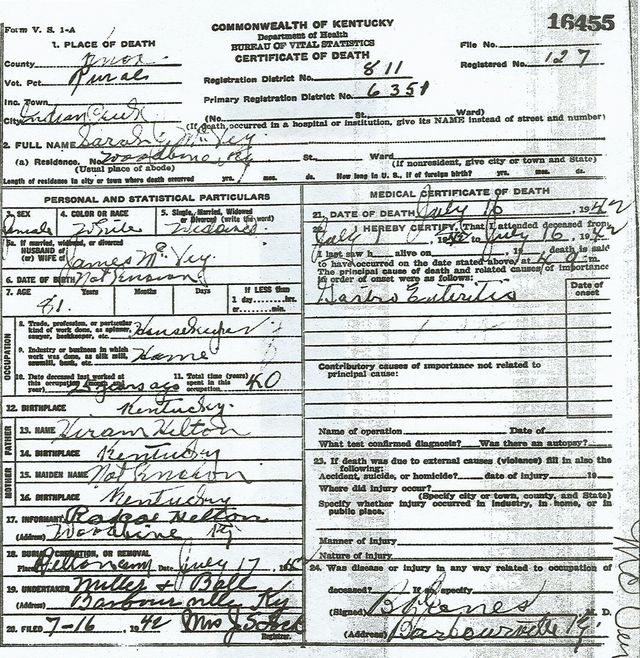 Form V. S. 1-A
COMMONWEALTH OF KENTUCKY
Department of Health
BUREAU OF VITAL STATISTICS
CERTIFICATE OF DEATH
16455
File No.
Registered No. 127
1. PLACE OF DEATH
County Knox
Vot. Pct. Rurals
Inc. Town
City Indian Creek
Registration District No. 811
Primary Registration District No. 6351
(No. St., Ward)
(If death occurred in a hospital or institution, give its NAME instead of street and number)
2. FULL NAME Sarah Mc Vey
(a) Residence. No. Woodbine, Ky St. Ward
(Usual place of abode) (If nonresident, give city or town and State)
Length of residence in city or town where death occurred yrs. mos. ds. How long in U. S., if of foreign birth? yrs. mos. ds.
PERSONAL AND STATISTICAL PARTICULARS
3. SEX Female
4. COLOR OR RACE White
5. Single, Married, Widowed or Divorced (write the word) Widowed
5a. If married, widowed, or divorced
HUSBAND of
(or) WIFE of James Mc Vey
6. DATE OF BIRTH Not Known
7. AGE Years Months Days If LESS than
1 day......hrs.
or......min.
81
OCCUPATION
8. Trade, profession, or particular
kind of work done, as spinner,
sawyer, bookkeeper, etc. Housekeeper
9. Industry or business in which
work was done, as silk mill,
sawmill, bank, etc. Home
10. Date deceased last worked at
this occupation (month and
year) years ago
11. Total time (years)
spent in this
occupation 40
12. BIRTHPLACE Kentucky
FATHER
13. NAME Hiram Helton
14. BIRTHPLACE Kentucky
MOTHER
15. MAIDEN NAME Not Known
16. BIRTHPLACE Kentucky
17. INFORMANT Roscoe Helton
(Address) Woodbine Ky
18. BURIAL, CREMATION, OR REMOVAL
Place Date July 17, 19
19. UNDERTAKER Miller & Ball
(Address) Barbourville, Ky
20. FILED 7-16, 1942 Mrs J
Registrar.
MEDICAL CERTIFICATE OF DEATH
21. DATE OF DEATH July 16, 1942
22. I HEREBY CERTIFY, That I attended deceased from
July 1, 1942 to July 16, 1942
I last saw h alive on , 19 death is said
to have occurred on the date stated above, at 4 m.
The principal cause of death and related causes of importance
in order of onset were as follows:
Date of
onset
Gastro Enteritis
Contributory causes of importance not related to
principal cause:
Name of operation Date of
What test confirmed diagnosis? Was there an autopsy?
23. If death was due to external causes (violence) fill in also the
following:
Accident, suicide, or homicide? date of injury 19
Where did injury occur?
(Specify city or town, county, and State)
Specify whether injury occurred in industry, in home, or in
public place.
Manner of injury
Nature of injury
24. Was disease or injury in any way related to occupation of
deceased? If so, specify
(Signed) Jones M. D.
(Address) Barbourville Ky